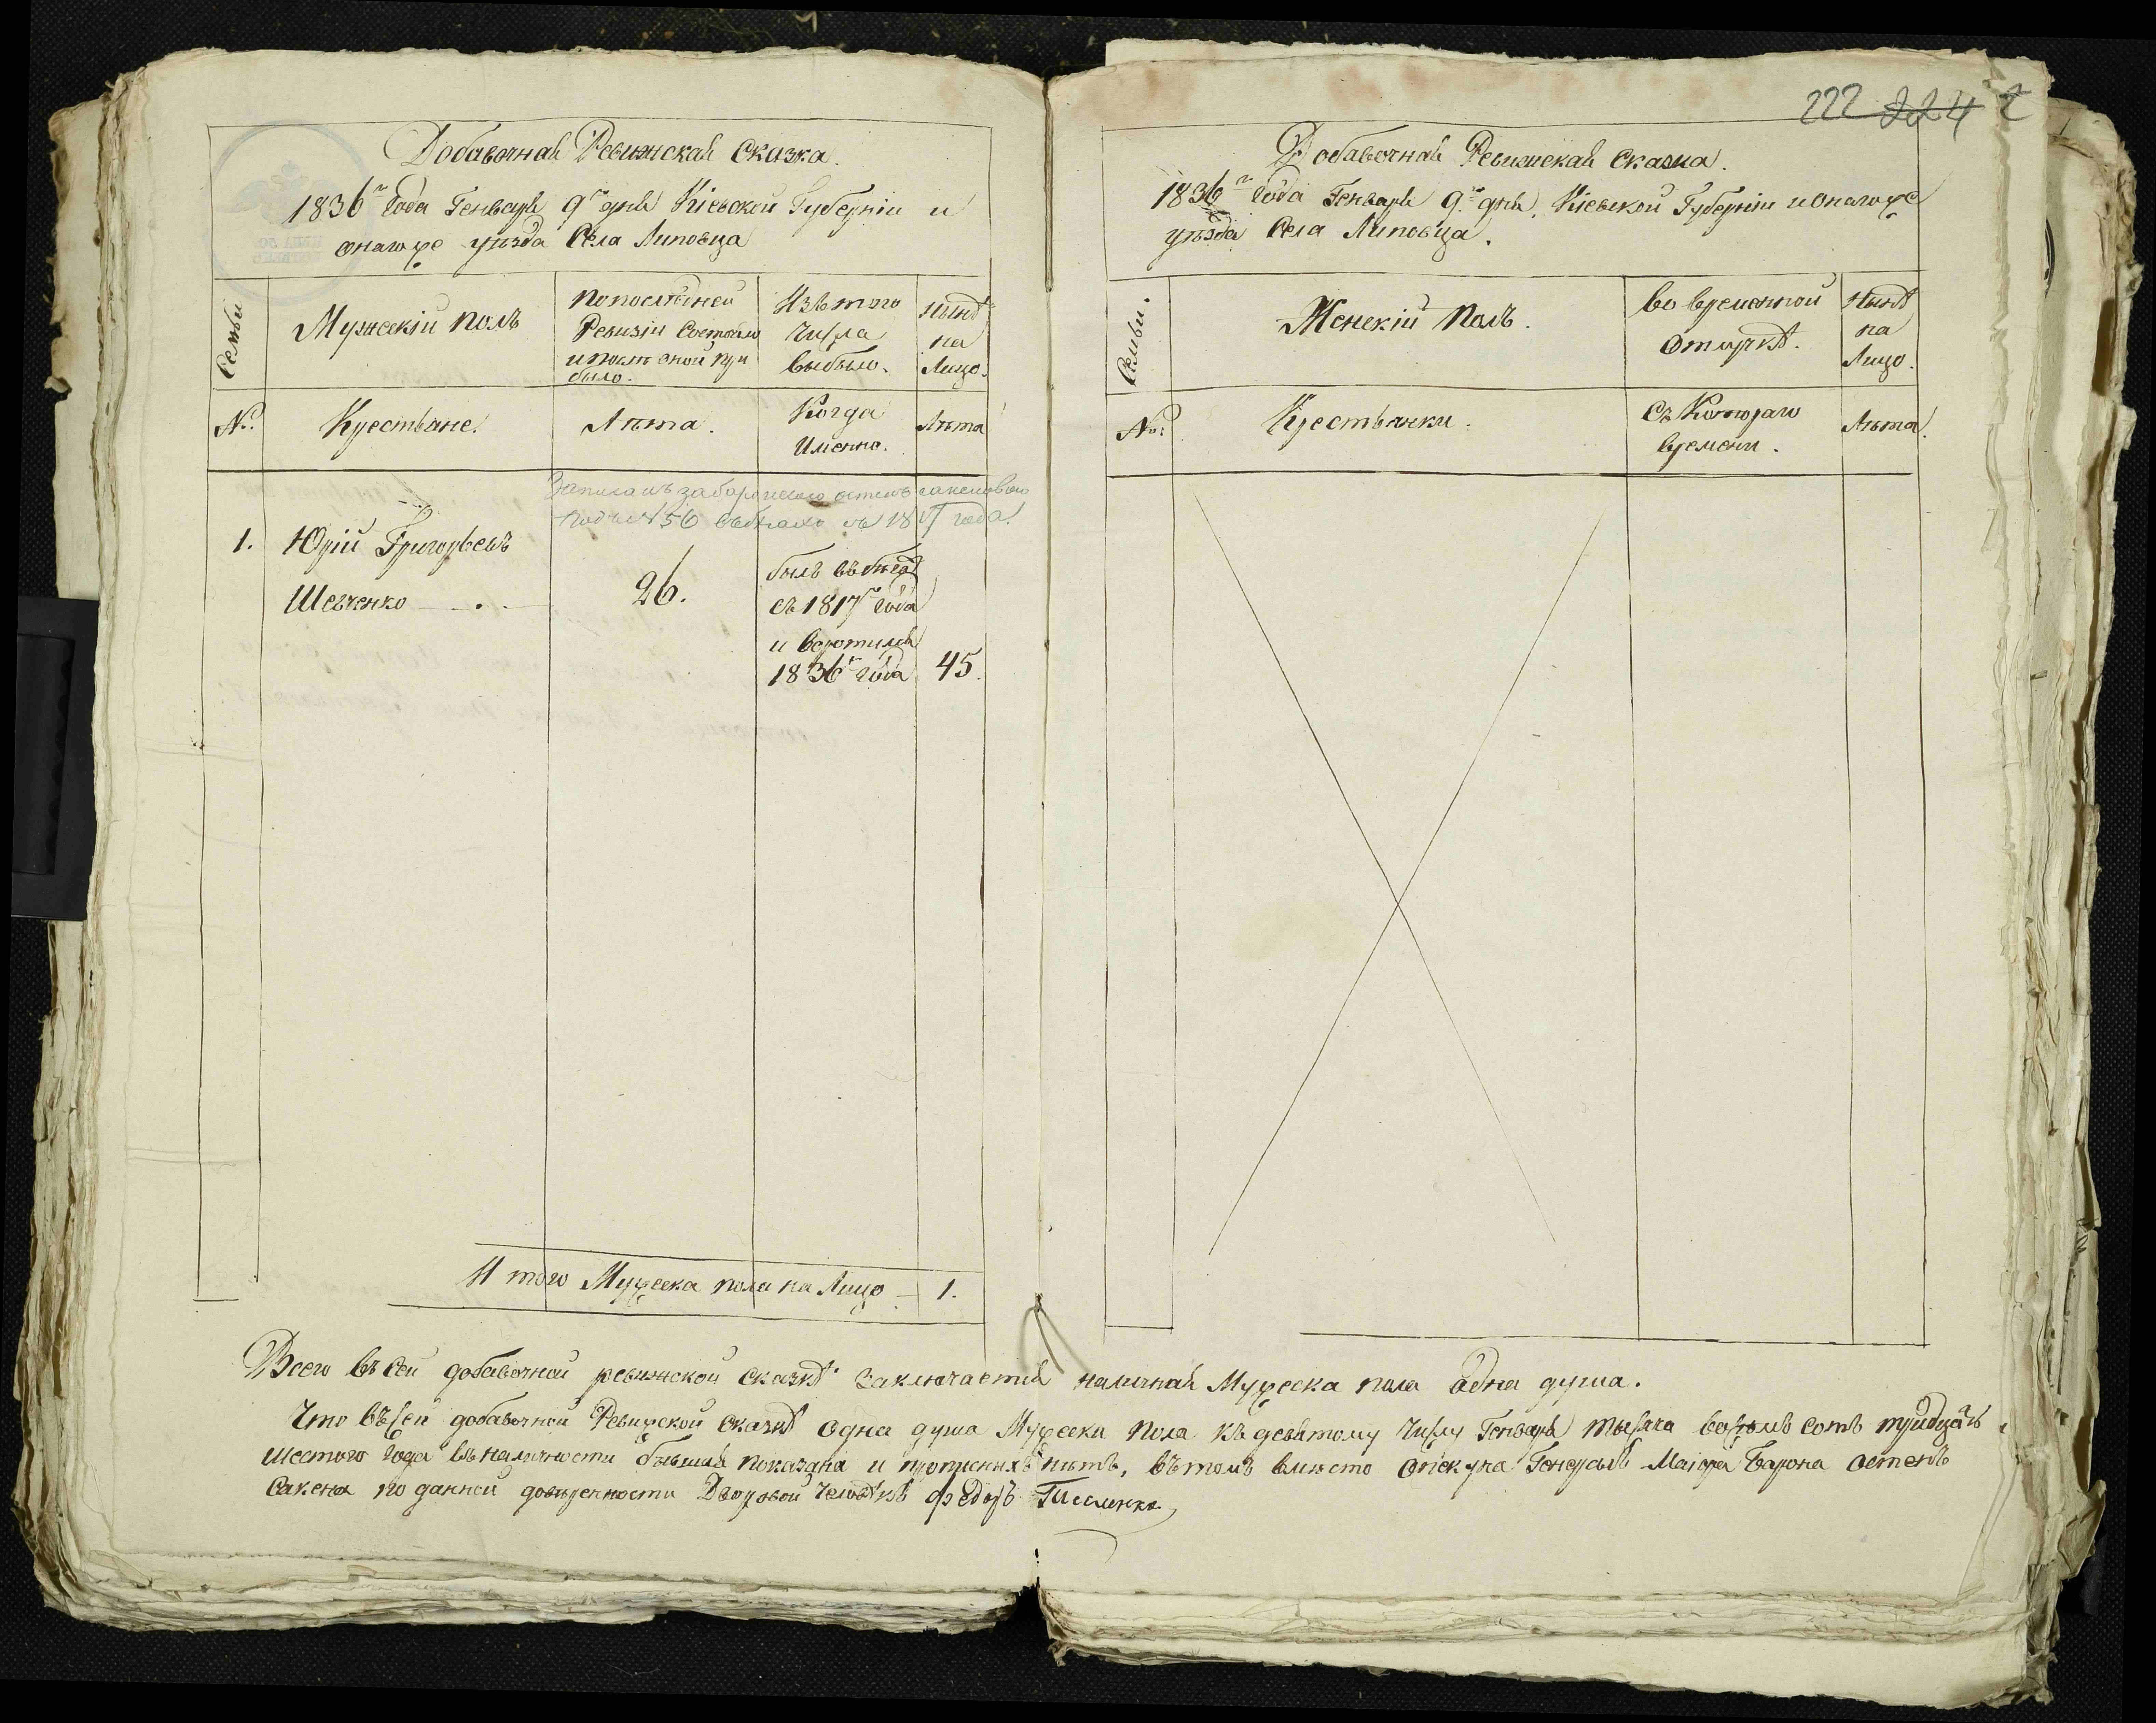 Добавочная Ревижская Сказка.
1836го Года Генваря 9го дня Кіевской Губерніи и
онагоже уезда Села Липовца
Семьи
Мужескій полъ
По последней Ревизіи Состояло и после оной при было.
Изъ того Числа выбыло.
Ныне на Лицо.
№
Крестьяне.
Лета.
Когда Именно.
Лета
Записанъ за остенъ сакеновою
подъ № 56 съ 1817 года.
1. Юрій Григорьевъ
Шевченко
26.
былъ въ бегах
съ 1817го Года
и воротился
1836го года 45.
И того Мужеска пола на Лицо 1.
222 224 2
Добавочная Ревижская Сказка.
1836го Года Генваря 9го дня, Кіевской Губерніи и онагоже
уезда Села Липовца.
Семьи.
Женскій Полъ.
Во временной отлучке.
Ныне на Лицо.
№
Крестьянки.
Съ Котораго времени.
Лета.
Всего въ сей добавочной ревижской сказке заключается наличная Мужеска пола одна душа.
Что въ сей добавочной Ревижской сказке одна душа Мужеска пола къ девятому числу Генваря тысяча восемь сотъ тридцать
шестого года въ наличности бывшая показана и прописныхъ нетъ, въ томъ вместо опекуна Генералъ Маіора Барона остенъ
Сакена по данной доверенности Дворовой человекъ Федоръ